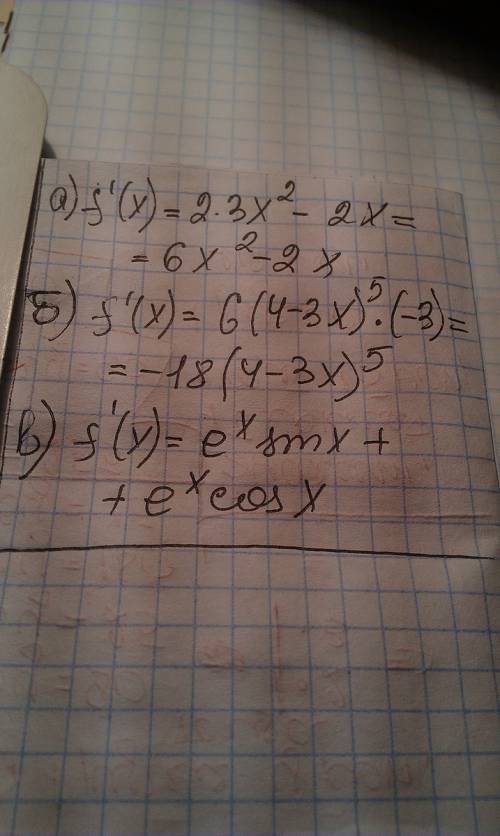 а) f'(x) = 2·3x² - 2x =
= 6x² - 2x
б) f'(x) = 6(4-3x)⁵·(-3) =
= -18(4-3x)⁵
в) f'(x) = eˣ sinx +
+ eˣ cosx